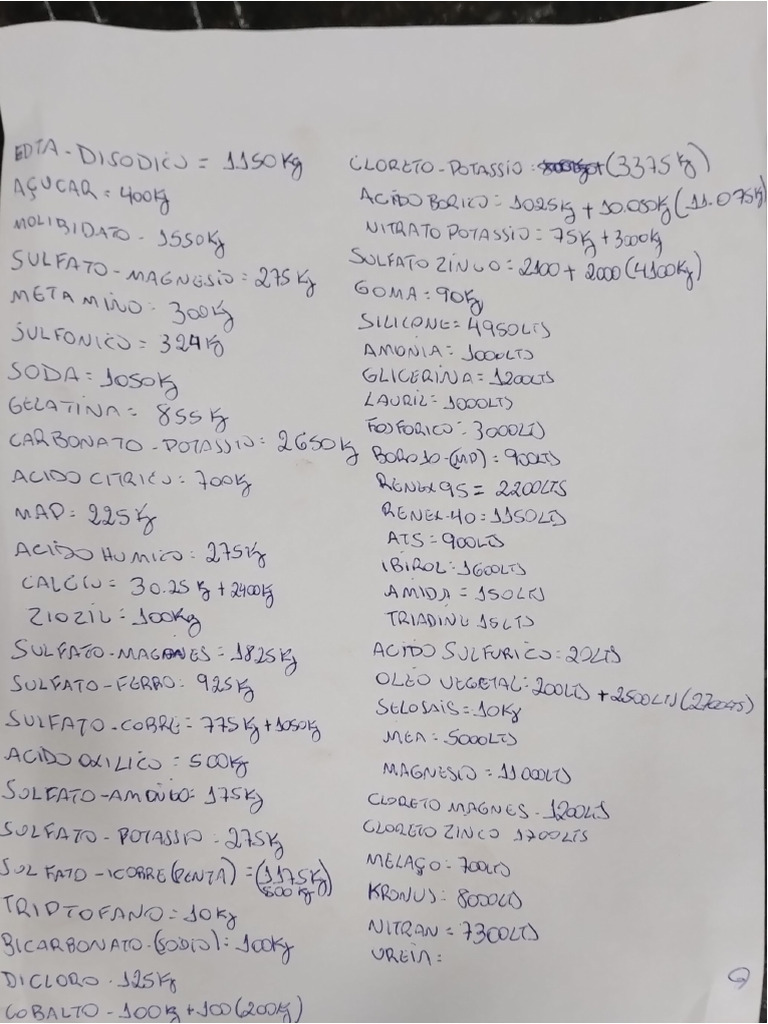 EDTA-DISODICO = 1150Kg
AÇUCAR = 400Kg
MOLIBIDATO - 1550Kg
SULFATO-MAGNESIO = 275Kg
METAMINO: 300Kg
SULFONICO = 324Kg
SODA = 1050Kg
GELATINA = 855Kg
CARBONATO-POTASSIO: 2650Kg
ACIDO CITRICO: 700Kg
MAP: 225Kg
ACIDO HUMICO: 275Kg
CALCIO = 30.25Kg + 2400Kg
ZIOZIL = 100Kg
SULFATO-MAGANES = 1825Kg
SULFATO-FERRO: 925Kg
SULFATO-COBRE = 775Kg + 1050Kg
ACIDO OXILICO = 500Kg
SULFATO-AMONIO = 175Kg
SULFATO-POTASSIO - 275Kg
SULFATO-ICOBRE (PENTA) = (1175Kg)
500Kg
TRIPTOFANO = 10Kg
BICARBONATO-(SODIO): 100Kg
DICLORO - 125Kg
COBALTO - 100Kg + 100 (200Kg)
CLORETO-POTASSIO = (3375Kg)
ACIDO BORICO: 1025Kg + 10.050Kg (11.075Kg)
NITRATO POTASSIO = 75Kg + 3000Kg
SULFATO ZINCO = 2100 + 2000 (4100Kg)
GOMA = 90Kg
SILICONE = 4950LTS
AMONIA = 1000LTS
GLICERINA = 1200LTS
LAURIL = 1000LTS
FOSFORICO: 3000LTS
BORO 10-(MP) = 900LTS
RENEX 95 = 2200LTS
RENEX-40 = 1150LTS
ATS = 900LTS
IBIROL: 1600LTS
AMIDA = 150LTS
TRIADINE 15LTS
ACIDO SULFURICO: 20LTS
OLEO VEGETAL: 200LTS + 2500LTS (2700LTS)
SELOSAIS = 10Kg
MEA = 5000LTS
MAGNESIO = 11000LTS
CLORETO MAGNES - 1200LTS
CLORETO ZINCO 1700LTS
MELAÇO = 700LTS
KRONUS: 8000LTS
NITRAN = 7300LTS
UREIA: